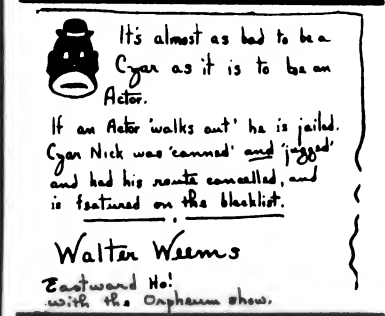 It's almost as bad to be a
Czar as it is to be an
Actor.
If an Actor 'walks out' he is jailed.
Czar Nick was 'canned' and 'jugged'
and had his route cancelled, and
is featured on the blacklist.
Walter Weems
Eastward Ho!
with the Orpheum show.